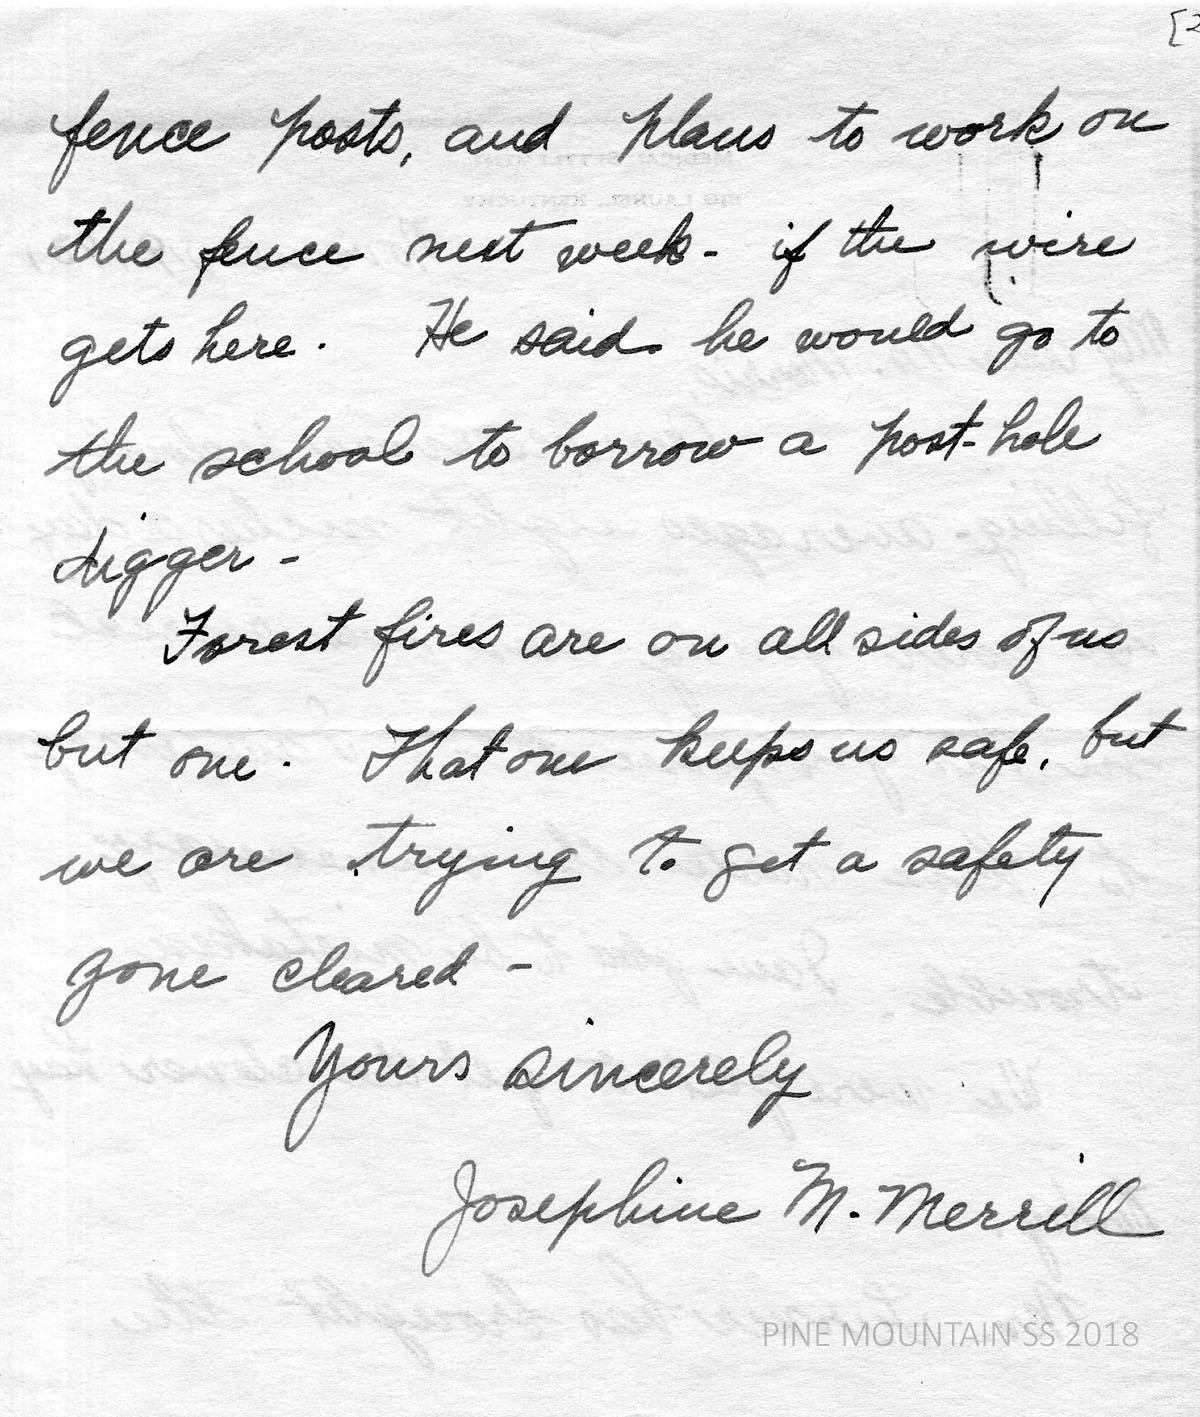 [2
fence posts, and plans to work on
the fence next week - if the wire
gets here. He said he would go to
the school to borrow a post-hole
digger -
Forest fires are on all sides of us
but one. That one keeps us safe, but
we are trying to get a safety
zone cleared -
Yours sincerely
Josephine M. Merrill
PINE MOUNTAIN SS 2018